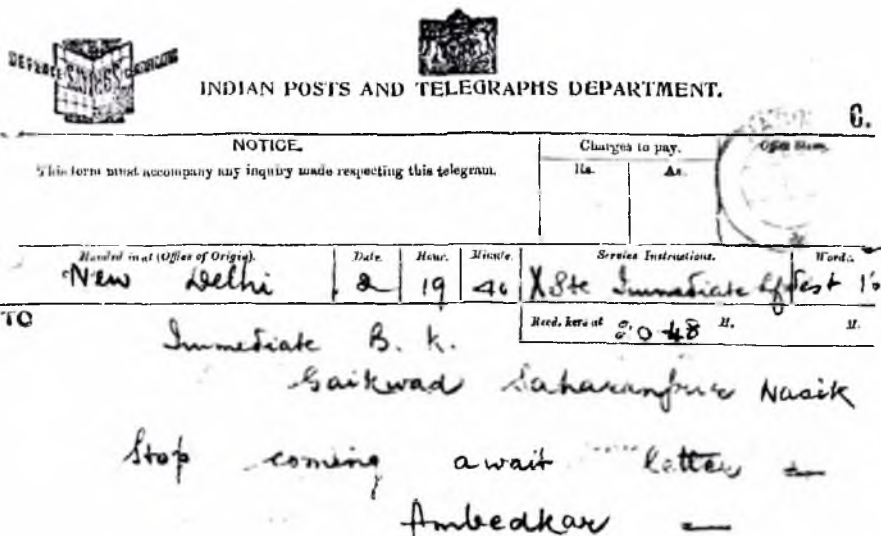 DEFENCE SAVINGS
INDIAN POSTS AND TELEGRAPHS DEPARTMENT.
C.
NOTICE.
This form must accompany any inquiry made respecting this telegram.
Charges to pay.
Rs. As.
Office Stamp.
Handed in at (Office of Origin). Date. Hour. Minute. Service Instructions. Words.
New Delhi 2 19 40 X Ste Immediate
TO
Recd. here at H. M.
Immediate B. K.
Gaikwad Saharanpur Nasik
Stop coming await letter =
Ambedkar =